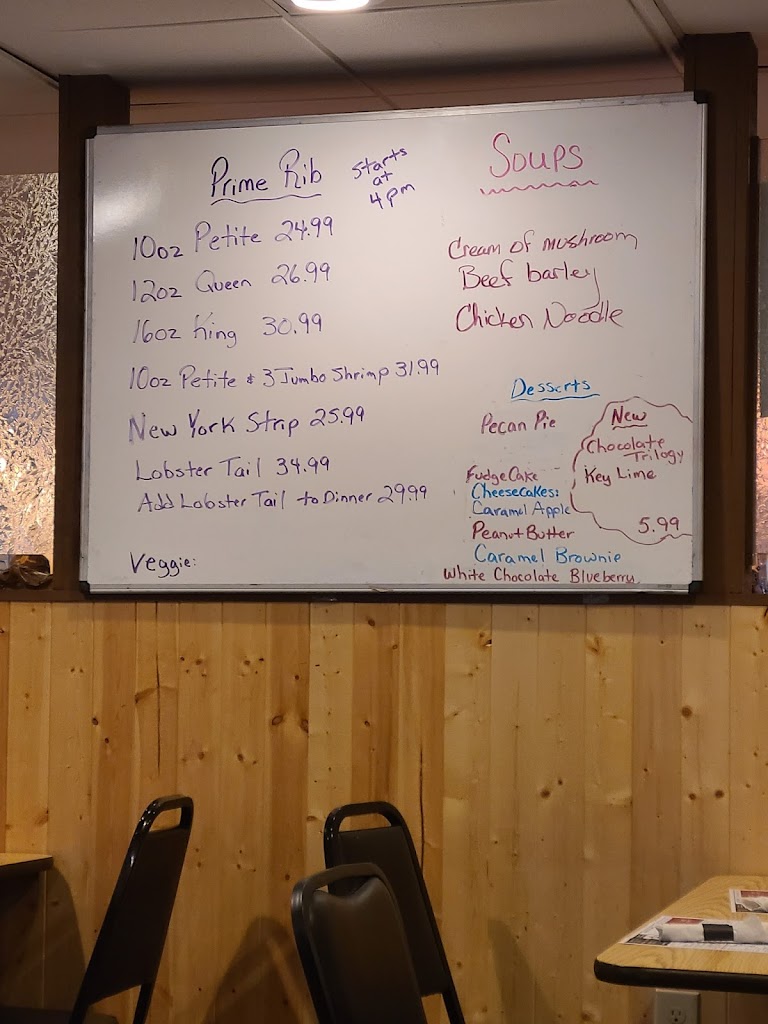 Prime Rib
Starts
at
4pm
10oz Petite 24.99
12oz Queen 26.99
16oz King 30.99
10oz Petite & 3 Jumbo Shrimp 31.99
New York Strip 25.99
Lobster Tail 34.99
Add Lobster Tail to Dinner 29.99
Veggie:
Soups
Cream of mushroom
Beef barley
Chicken Noodle
Desserts
Pecan Pie
Fudge Cake
Cheesecakes:
Caramel Apple
Peanut Butter
Caramel Brownie
White Chocolate Blueberry
New
Chocolate
Trilogy
Key Lime
5.99